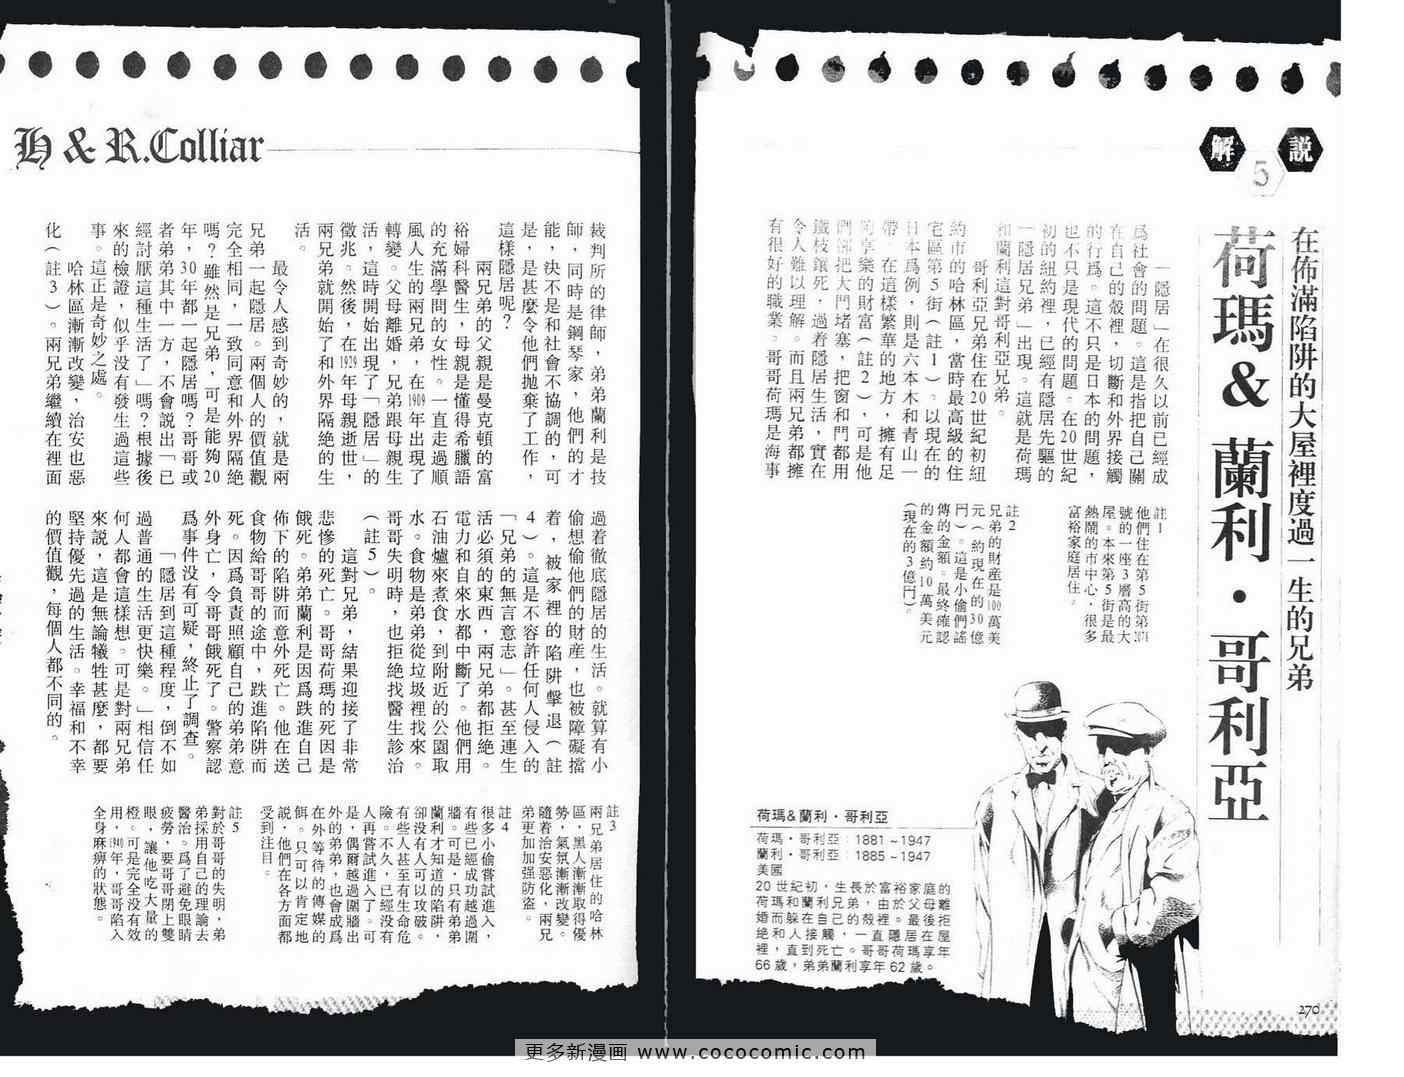 解
説
5
在佈滿陷阱的大屋裡度過一生的兄弟
荷瑪&蘭利・哥利亞
「隱居」在很久以前已經成
爲社會的問題。這是指把自己關
在自己的殼裡，切斷和外界接觸
的行爲。這不只是日本的問題，
也不只是現代的問題。在20世紀
初的紐約裡，已經有隱居先驅的
「隱居兄弟」出現。這就是荷瑪
和蘭利這對哥利亞兄弟。
哥利亞兄弟住在20世紀初紐
約市的哈林區，當時最高級的住
宅區第5街（註1）。以現在的
日本爲例，則是六本木和青山一
帶。在這樣繁華的地方，擁有足
夠享樂的財富（註2），可是他
們卻把大門堵塞，把窗和門都用
鐵枝鑲死，過着隱居生活，實在
令人難以理解。而且兩兄弟都擁
有很好的職業。哥哥荷瑪是海事
註1
他們住在第5街第2078
號的一座3層高的大
屋。本來第5街是最
熱鬧的市中心，很多
富裕家庭居住。
註2
兄弟的財產是100萬美
元（約現在的30億
円）。這是小偷們謠
傳的金額。最終確認
的金額約10萬美元
（現在的3億円）。
荷瑪&蘭利・哥利亞
荷瑪・哥利亞：1881～1947
蘭利・哥利亞：1885～1947
美國
20世紀初，生長於富裕家庭的
荷瑪和蘭利兄弟，由於父母離
婚而躲在自己的殼裡。最後拒
絶和人接觸，一直隱居在屋
裡，直到死亡。哥哥荷瑪享年
66歲，弟弟蘭利享年62歲。
270
H & R.Colliar
裁判所的律師，弟弟蘭利是技
師，同時是鋼琴家，他們的才
能，決不是和社會不協調的，可
是，是甚麼令他們拋棄了工作，
這樣隱居呢？
兩兄弟的父親是曼克頓的富
裕婦科醫生，母親是懂得希臘語
的充滿學問的女性。一直走過順
風人生的兩兄弟，在1909年出現了
轉變。父母離婚，兄弟跟母親生
活，這時開始出現了「隱居」的
徵兆。然後，在1929年母親逝世，
兩兄弟就開始了和外界隔絶的生
活。
最令人感到奇妙的，就是兩
兄弟一起隱居。兩個人的價值觀
完全相同，一致同意和外界隔絶
嗎？雖然是兄弟，可是能夠20
年，30年都一起隱居嗎？哥哥或
者弟弟其中一方，不會說出「已
經討厭這種生活了」嗎？根據後
來的檢證，似乎没有發生過這些
事。這正是奇妙之處。
哈林區漸漸改變，治安也惡
化（註3）。兩兄弟繼續在裡面
過着徹底隱居的生活。就算有小
偷想偷他們的財產，也被障礙擋
着，被家裡的陷阱擊退（註
4）。這是不容許任何人侵入的
「兄弟的無言意志」。甚至連生
活必須的東西，兩兄弟都拒絶。
電力和自來水都中斷了。他們用
石油爐來煮食，到附近的公園取
水。食物是弟弟從垃圾裡找來。
哥哥失明時，也拒絶找醫生診治
（註5）。
這對兄弟，結果迎接了非常
悲慘的死亡。哥哥荷瑪的死因是
餓死。弟弟蘭利是因爲跌進自己
佈下的陷阱而意外死亡。他在送
食物給哥哥的途中，跌進陷阱而
死。因爲負責照顧自己的弟弟意
外身亡，令哥哥餓死了。警察認
爲事件没有可疑，終止了調查。
「隱居到這種程度，倒不如
過普通的生活更快樂。」相信任
何人都會這樣想。可是對兩兄弟
來説，這是無論犧牲甚麼，都要
堅持優先過的生活。幸福和不幸
的價值觀，每個人都不同的。
註3
兩兄弟居住的哈林
區，黑人漸漸取得優
勢，氣氛漸漸改變。
隨着治安惡化，兩兄
弟更加加强防盗。
註4
很多小偷嘗試進入，
有些已經成功越過圍
牆。可是，只有弟弟
蘭利才知道的陷阱，
卻没有人可以攻破。
有些人甚至有生命危
險。不久，已經没有
人再嘗試進入了。可
是，偶爾越過圍牆出
外的弟弟，也會成爲
在外等待的傳媒的
餌。只可以肯定地
説，他們在各方面都
受到注目。
註5
對於哥哥的失明，弟
弟採用自己的理論去
醫治。爲了避免眼睛
疲勞，要哥哥閉上雙
眼，讓他吃大量的
橙。可是完全没有效
用，1940年，哥哥陷入
全身麻痹的狀態。
更多新漫画 www.cococomic.com